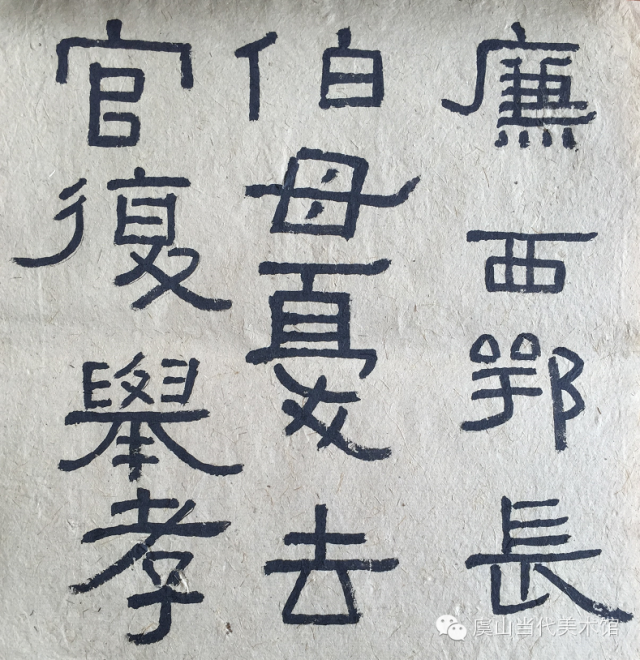 廉西鄂長
伯母憂去
官復舉孝
虞山当代美术馆